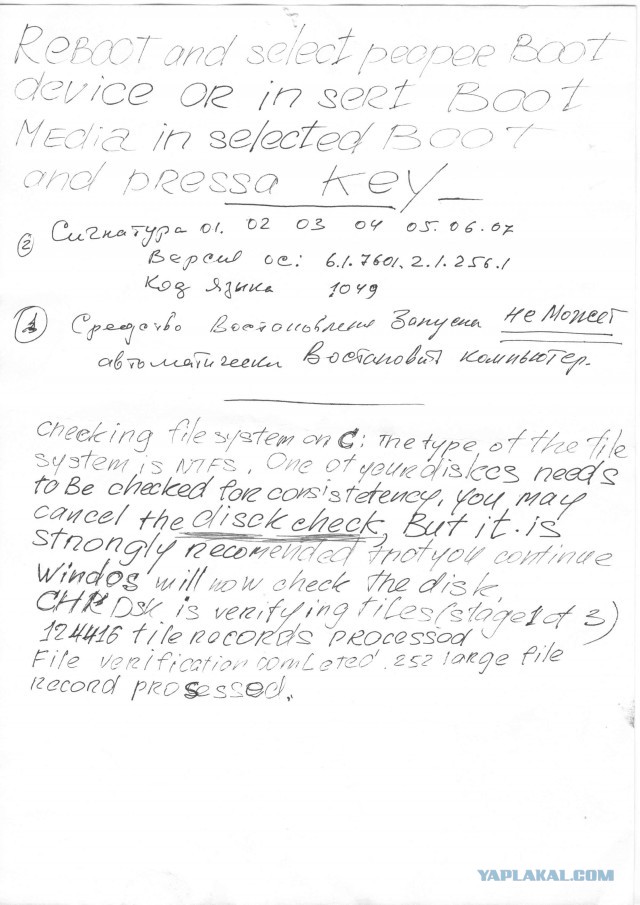 ReBOOT and select peoper BOOT
device OR in sert BOOT
Media in selected BOOT
and pressa Key_
② Сигнатура 01. 02 03 04 05. 06. 07
Версия ос: 6.1.7601.2.1.256.1
Код языка 1049
① Средство Востановления Запуска Не Может
автоматически Востановит компьютер.
Checking file system on C: The type of the file
system is NTFS. One of your diskes needs
to Be checked for consistetency, you may
cancel the disck check, But it is
strongly recomended that you continue
Windos will now check the disk.
CHKDSK is verifying files (stage 1 of 3)
124416 file recoRds processod
File verification comLeted. 252 large file
Record prosessed.
YAPLAKAL.COM